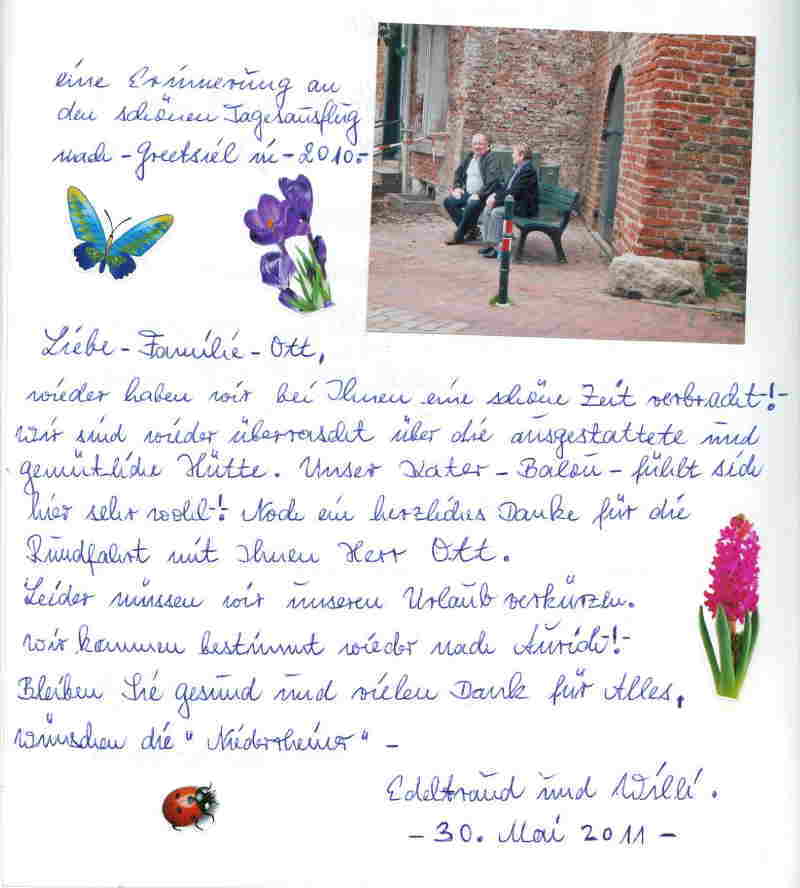 eine Erinnerung an
den schönen Tagesausflug
nach - Greetsiel in - 2010.-
Liebe - Familie - Ott,
wieder haben wir bei Ihnen eine schöne Zeit verbracht-!-
Wir sind wieder überrascht über die ausgestattete und
gemütliche Hütte. Unser Kater - Balou - fühlt sich
hier sehr wohl-! Noch ein herzliches Danke für die
Rundfahrt mit Ihnen Herr Ott.
Leider müssen wir unseren Urlaub verkürzen.
Wir kommen bestimmt wieder nach Aurich-!-
Bleiben Sie gesund und vielen Dank für Alles,
wünschen die "Niederrheiner" -
Edeltraud und Willi.
- 30. Mai 2011 -